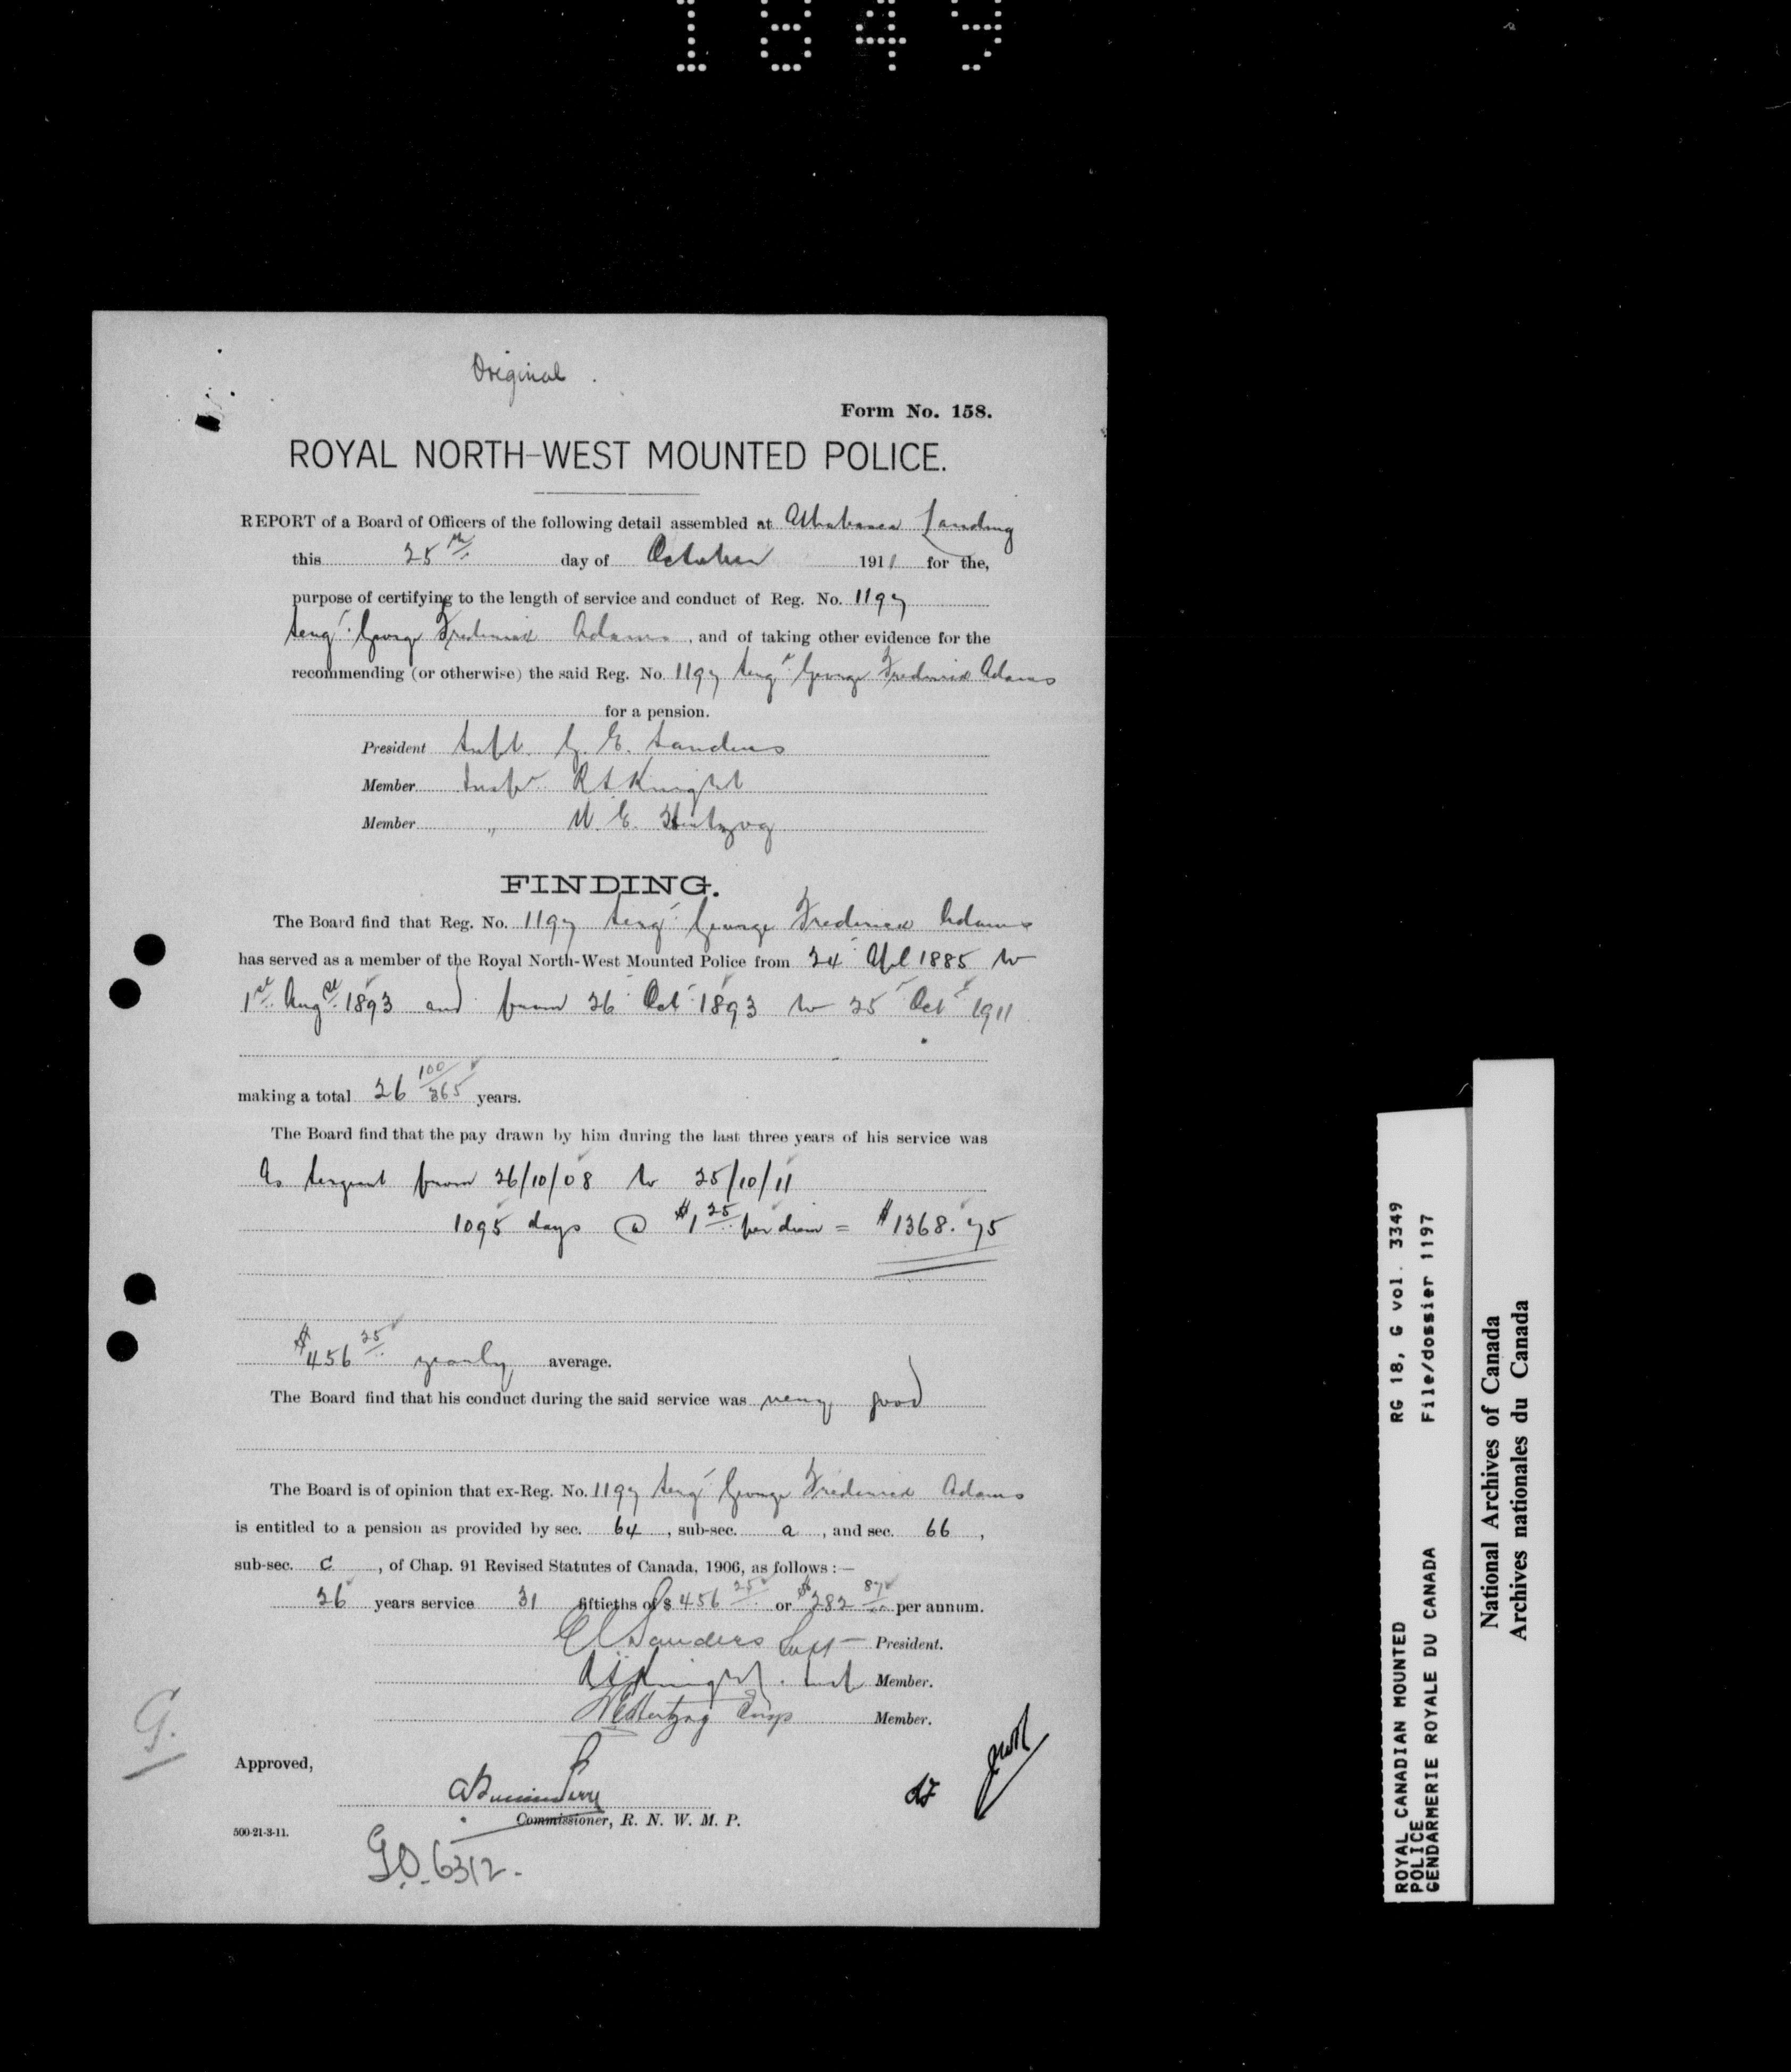 1849
Original.
Form No. 158.
ROYAL NORTH-WEST MOUNTED POLICE.
REPORT of a Board of Officers of the following detail assembled at Athabasca Landing
this 25th day of October 1911 for the,
purpose of certifying to the length of service and conduct of Reg. No. 1197
Sergt. George Frederick Adams, and of taking other evidence for the
recommending (or otherwise) the said Reg. No. 1197 Sergt. George Frederick Adams
for a pension.
President Supt. G. E. Sanders
Member Inspr. R S Knight
Member " W. E. Hertzog
FINDING.
The Board find that Reg. No. 1197 Sergt. George Frederick Adams
has served as a member of the Royal North-West Mounted Police from 24 Apl 1885 to
1st Augst 1893 and from 26 Oct 1893 to 25 Oct 1911
making a total 26 100/365 years.
The Board find that the pay drawn by him during the last three years of his service was
As Sergeant from 26/10/08 to 25/10/11
1095 days @ $1 25 per diem = $1368.75
$456 25 yearly average.
The Board find that his conduct during the said service was very good
The Board is of opinion that ex-Reg. No. 1197 Sergt George Frederick Adams
is entitled to a pension as provided by sec. 64, sub-sec. a, and sec. 66,
sub-sec. c, of Chap. 91 Revised Statutes of Canada, 1906, as follows:—
26 years service 31 fiftieths of $ 456 25 or $282 87 per annum.
GE Sanders Supt President.
R S Knight. Insp Member.
W E Hertzog Insp Member.
G.
Approved,
A Bowen Perry
Commissioner, R. N. W. M. P.
500-21-3-11.
G.O. 6312.
ROYAL CANADIAN MOUNTED RG 18, G vol. 3349
POLICE
GENDARMERIE ROYALE DU CANADA File/dossier 1197
National Archives of Canada
Archives nationales du Canada